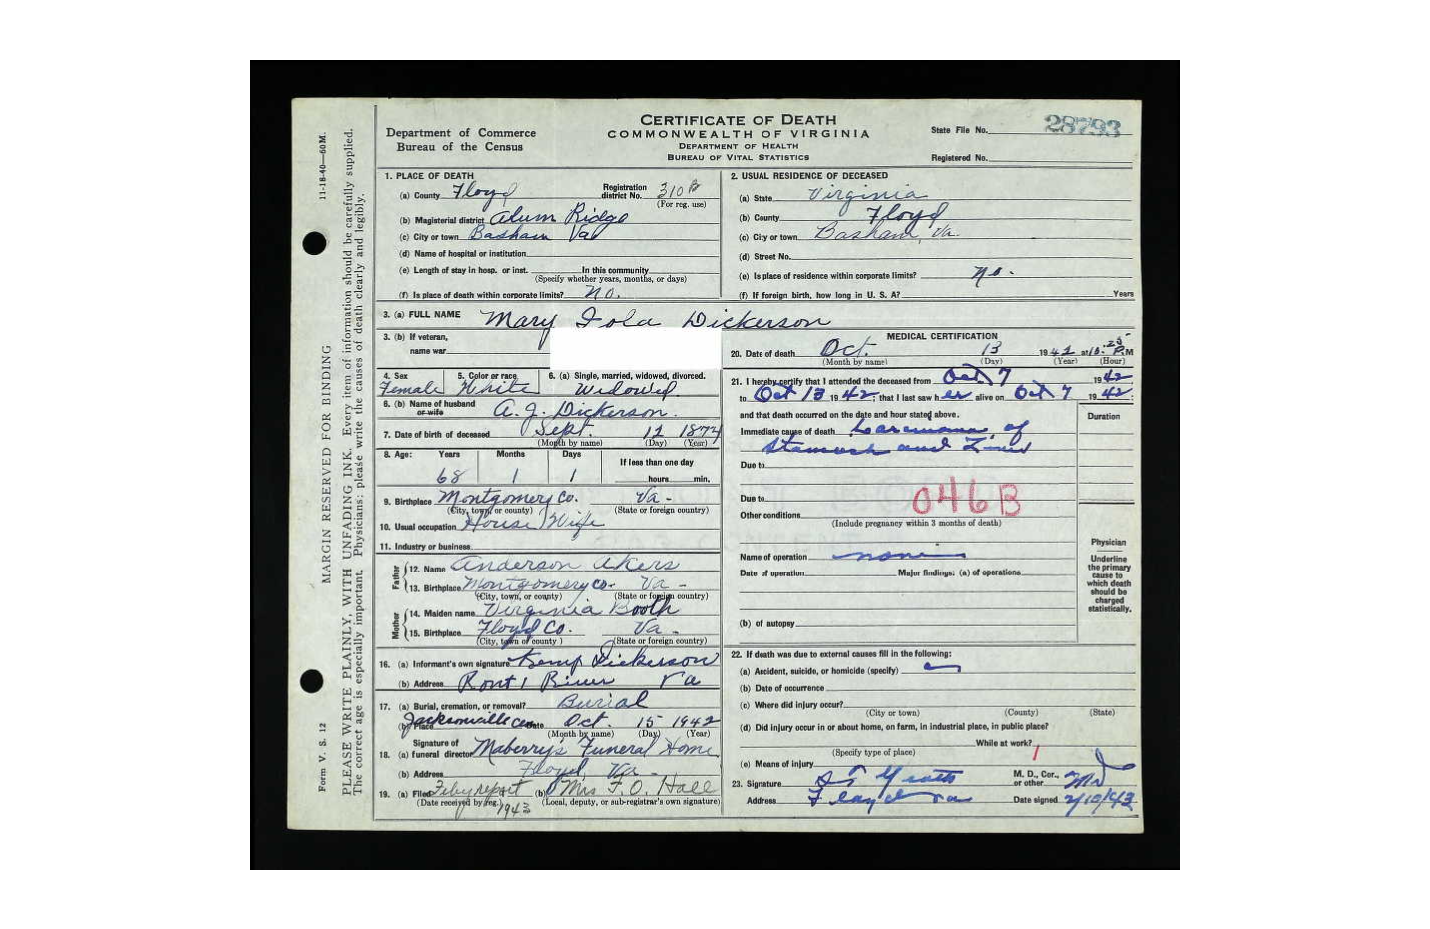 11-18-40—60M.
MARGIN RESERVED FOR BINDING
PLEASE WRITE PLAINLY, WITH UNFADING INK. Every item of information should be carefully supplied.
The correct age is especially important. Physicians: please write the causes of death clearly and legibly.
Form V. S. 12
Department of Commerce
Bureau of the Census
CERTIFICATE OF DEATH
COMMONWEALTH OF VIRGINIA
DEPARTMENT OF HEALTH
BUREAU OF VITAL STATISTICS
State File No. 28793
Registered No.
1. PLACE OF DEATH
(a) County Floyd Registration district No. 310 B
(For reg. use)
(b) Magisterial district Alum Ridge
(c) City or town Basham Va
(d) Name of hospital or institution
(e) Length of stay in hosp. or inst. In this community
(Specify whether years, months, or days)
(f) Is place of death within corporate limits? no.
2. USUAL RESIDENCE OF DECEASED
(a) State Virginia
(b) County Floyd
(c) City or town Basham, Va.
(d) Street No.
(e) Is place of residence within corporate limits? no.
(f) If foreign birth, how long in U. S. A? Years
3. (a) FULL NAME Mary Iola Dickerson
3. (b) If veteran,
name war
4. Sex 5. Color or race 6. (a) Single, married, widowed, divorced.
Female White Widowed.
6. (b) Name of husband or wife A. J. Dickerson.
7. Date of birth of deceased Sept. 12 1874
(Month by name) (Day) (Year)
8. Age: Years Months Days If less than one day
68 1 1 hours min.
9. Birthplace Montgomery Co. Va-
(City, town, or county) (State or foreign country)
10. Usual occupation House Wife
11. Industry or business
Father
12. Name Anderson Akers
13. Birthplace Montgomery Co- Va-
(City, town, or county) (State or foreign country)
Mother
14. Maiden name Virginia Booth
15. Birthplace Floyd Co. Va-
(City, town or county) (State or foreign country)
16. (a) Informant's own signature Kemp Dickerson
(b) Address Rout 1 Riner Va
17. (a) Burial, cremation, or removal? Burial
(b) Place Jacksonville Cem Date Oct. 15 1942
(Month by name) (Day) (Year)
18. Signature of
(a) funeral director Maberry's Funeral Home
(b) Address Floyd, Va-
19. (a) Filed Feby report 1943 (b) Mrs F. O. Hall
(Date received by reg.) (Local, deputy, or sub-registrar's own signature)
MEDICAL CERTIFICATION
20. Date of death Oct. 13 1942 at 10:25 P.M
(Month by name) (Day) (Year) (Hour)
21. I hereby certify that I attended the deceased from Oct 7 1942
to Oct 13 1942; that I last saw her alive on Oct 7 1942.
and that death occurred on the date and hour stated above.
Duration
Immediate cause of death Carcinoma of
Stomach and Liver
Due to
Due to 046B
Other conditions
(Include pregnancy within 3 months of death)
Name of operation none
Date of operation Major findings: (a) of operations
(b) of autopsy
Physician
Underline
the primary
cause to
which death
should be
charged
statistically.
22. If death was due to external causes fill in the following:
(a) Accident, suicide, or homicide (specify)
(b) Date of occurrence
(c) Where did injury occur?
(City or town) (County) (State)
(d) Did injury occur in or about home, on farm, in industrial place, in public place?
While at work?
(Specify type of place)
(e) Means of injury
23. Signature M. D., Cor., or other MD
Address Floyd Va Date signed 2/10/43